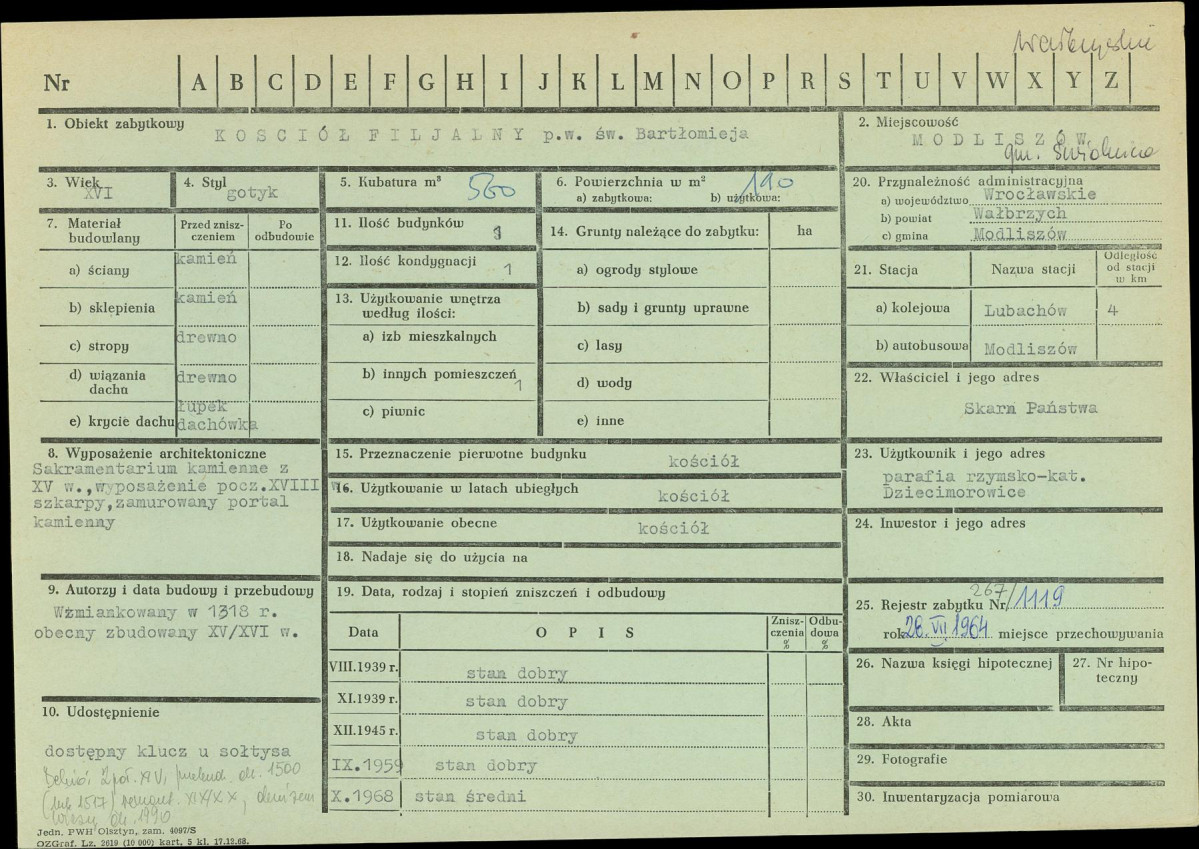 Wałbrzyskie
Nr A B C D E F G H I J K L M N O P R S T U V W X Y Z
1. Obiekt zabytkowy
KOSCIÓŁ FILJALNY p.w. św. Bartłomieja
2. Miejscowość
MODLISZÓW
gm. Świdnica
3. Wiek
XVI
4. Styl
gotyk
5. Kubatura m³ 560
6. Powierzchnia w m² 190
a) zabytkowa: b) użytkowa:
7. Materiał budowlany
Przed znisz-
czeniem
Po
odbudowie
a) ściany kamień
b) sklepienia kamień
c) stropy drewno
d) wiązania
dachu drewno
e) krycie dachu łupek
dachówka
8. Wyposażenie architektoniczne
Sakramentarium kamienne z
XV w.,wyposażenie pocz.XVIII w.
szkarpy,zamurowany portal
kamienny
9. Autorzy i data budowy i przebudowy
Wzmiankowany w 1318 r.
obecny zbudowany XV/XVI w.
10. Udostępnienie
dostępny klucz u sołtysa
2 poł. XIV, przebud. ok. 1500
1517) remont. XIX/XX,
ok. 1990
Jedn. PWH Olsztyn, zam. 4097/S
OZGraf. Lz. 2619 (10 000) kart. 5 kl. 17.12.68.
11. Ilość budynków 1
12. Ilość kondygnacji 1
13. Użytkowanie wnętrza
według ilości:
a) izb mieszkalnych
b) innych pomieszczeń 1
c) piwnic
14. Grunty należące do zabytku: ha
a) ogrody stylowe
b) sady i grunty uprawne
c) lasy
d) wody
e) inne
15. Przeznaczenie pierwotne budynku kościół
16. Użytkowanie w latach ubiegłych kościół
17. Użytkowanie obecne kościół
18. Nadaje się do użycia na
19. Data, rodzaj i stopień zniszczeń i odbudowy
Data OPIS Znisz-
czenia
% Odbu-
dowa
%
VIII.1939 r. stan dobry
XI.1939 r. stan dobry
XII.1945 r. stan dobry
IX.1959 stan dobry
X.1968 stan średni
20. Przynależność administracyjna
a) województwo Wrocławskie
b) powiat Wałbrzych
c) gmina Modliszów
21. Stacja Nazwa stacji Odległość
od stacji
w km
a) kolejowa Lubachów 4
b) autobusowa Modliszów
22. Właściciel i jego adres
Skarn Państwa
23. Użytkownik i jego adres
parafia rzymsko-kat.
Dziecimorowice
24. Inwestor i jego adres
25. Rejestr zabytku Nr 267/1119
rok 26. VII 1964 miejsce przechowywania
26. Nazwa księgi hipotecznej
27. Nr hipo-
teczny
28. Akta
29. Fotografie
30. Inwentaryzacja pomiarowa